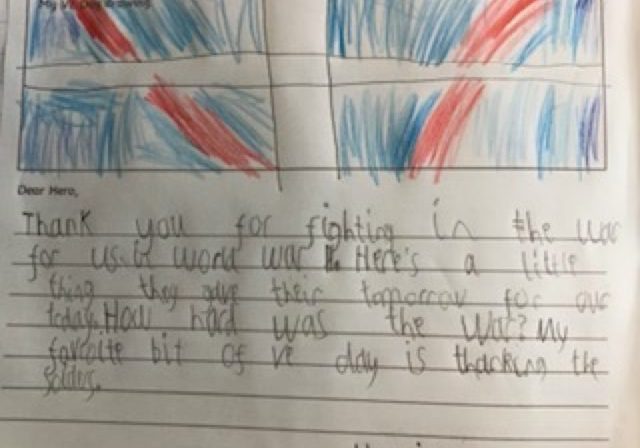 My VE Day drawing
Dear Hero,
Thank you for fighting in the war
for us. world war Here's a little
thing they gave their tomorrow for our
today. How hard was the war? My
favroite bit of ve day is thacking the